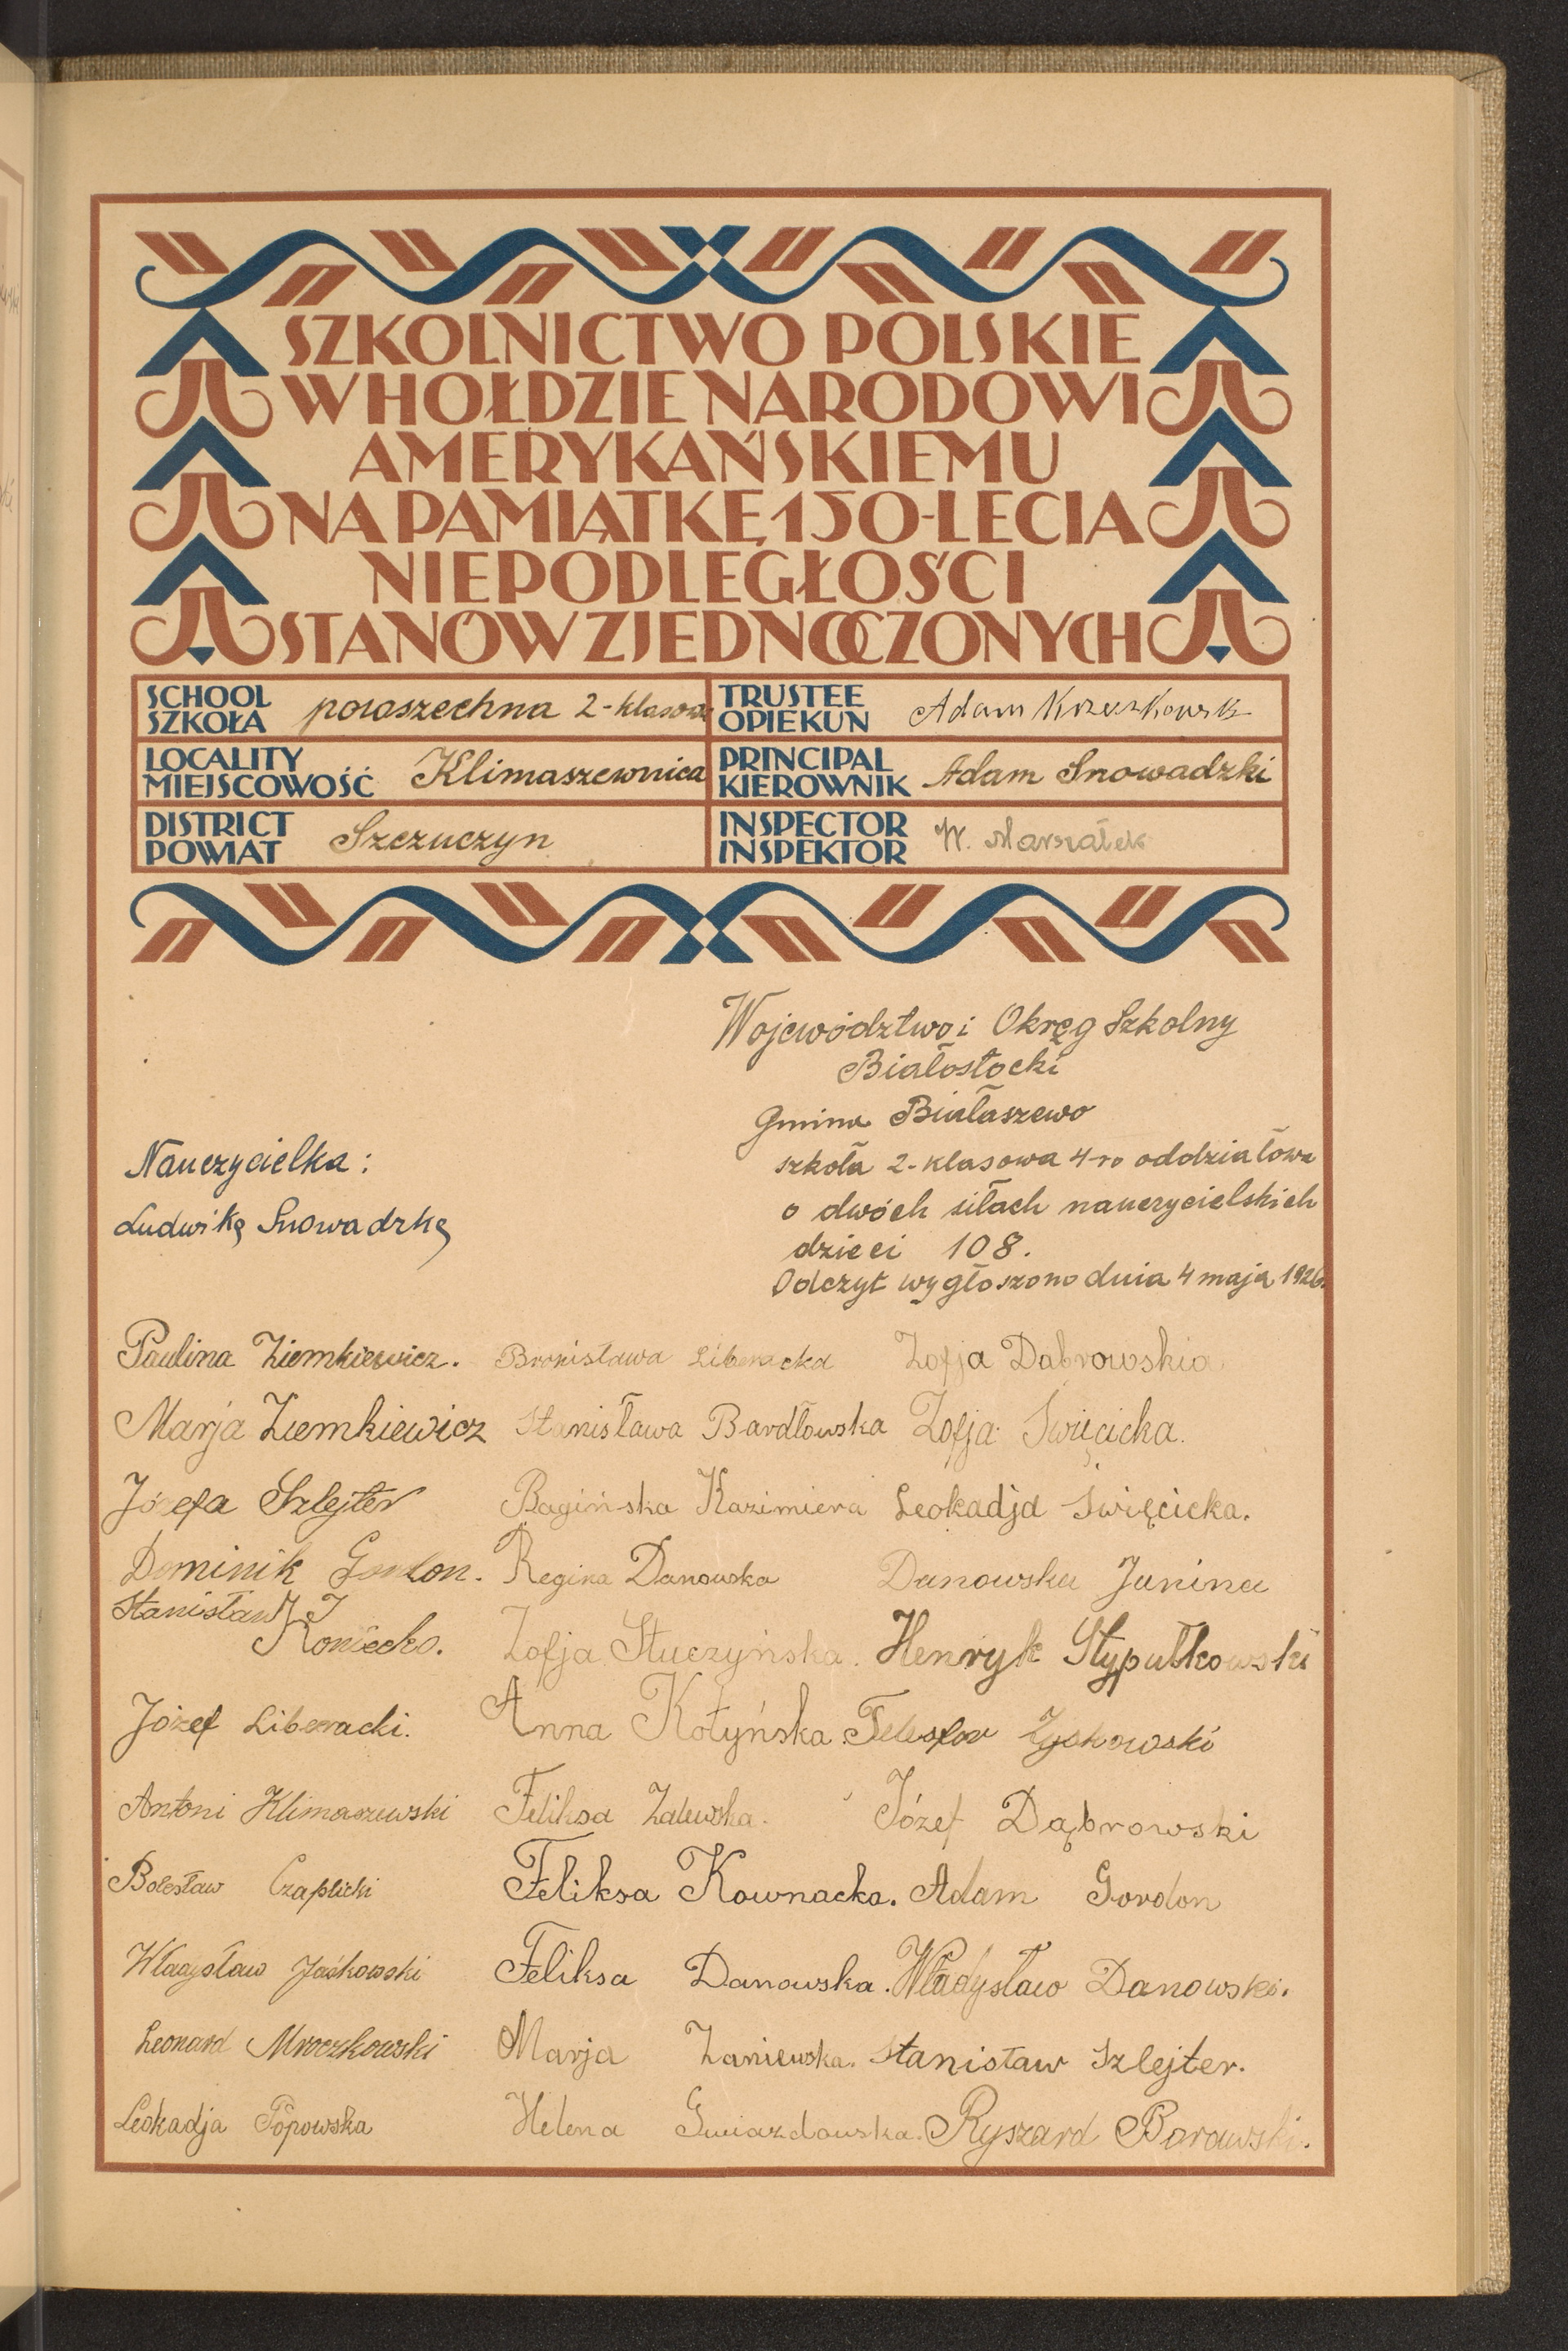 SZKOLNICTWO POLSKIE
W HOŁDZIE NARODOWI
AMERYKAŃSKIEMU
NA PAMIĄTKĘ 150-LECIA
NIEPODLEGŁOŚCI
STANÓW ZJEDNOCZONYCH
SCHOOL
SZKOŁA powszechna 2-klasowa
TRUSTEE
OPIEKUN Adam
LOCALITY
MIEJSCOWOŚĆ Klimaszewnica
PRINCIPAL
KIEROWNIK Adam Snowadzki
DISTRICT
POWIAT Szczuczyn
INSPECTOR
INSPEKTOR W. Marszałek
Województwo i Okręg Szkolny
Białostocki
Gmina Białaszewo
szkoła 2-klasowa 4-ro oddziałowa
o dwóch siłach nauczycielskich
dzieci 108.
Odczyt wygłoszono dnia 4 maja 1926.
Nauczycielka:
Ludwikę Snowadzkę
Paulina Ziemkiewicz. Bronisława Liberacka Zofja Dabrowskia
Marja Ziemkiewicz Stanisława Bardłowska Zofja Święcicka.
Józefa Szlejter Bagińska Kazimiera Leokadja Święcicka.
Dominik Gordon. Regina Danowska Danowska Janina
Stanisław
Konieczko. Zofja Stuczyńska. Henryk Stypułkowski
Józef Liberacki. Anna Kotyńska. Telesfor Zyskowski
Antoni Klimaszewski Feliksa Zalewska. Józef Dąbrowski
Bolesław Czaplicki Feliksa Kownacka. Adam Gordon
Władysław Jaśkowski Feliksa Danowska. Władysław Danowski.
Leonard Mroczkowski Marja Zaniewska. Stanisław Szlejter.
Leokadja Popowska Helena Gwiazdowska. Ryszard Borawski.